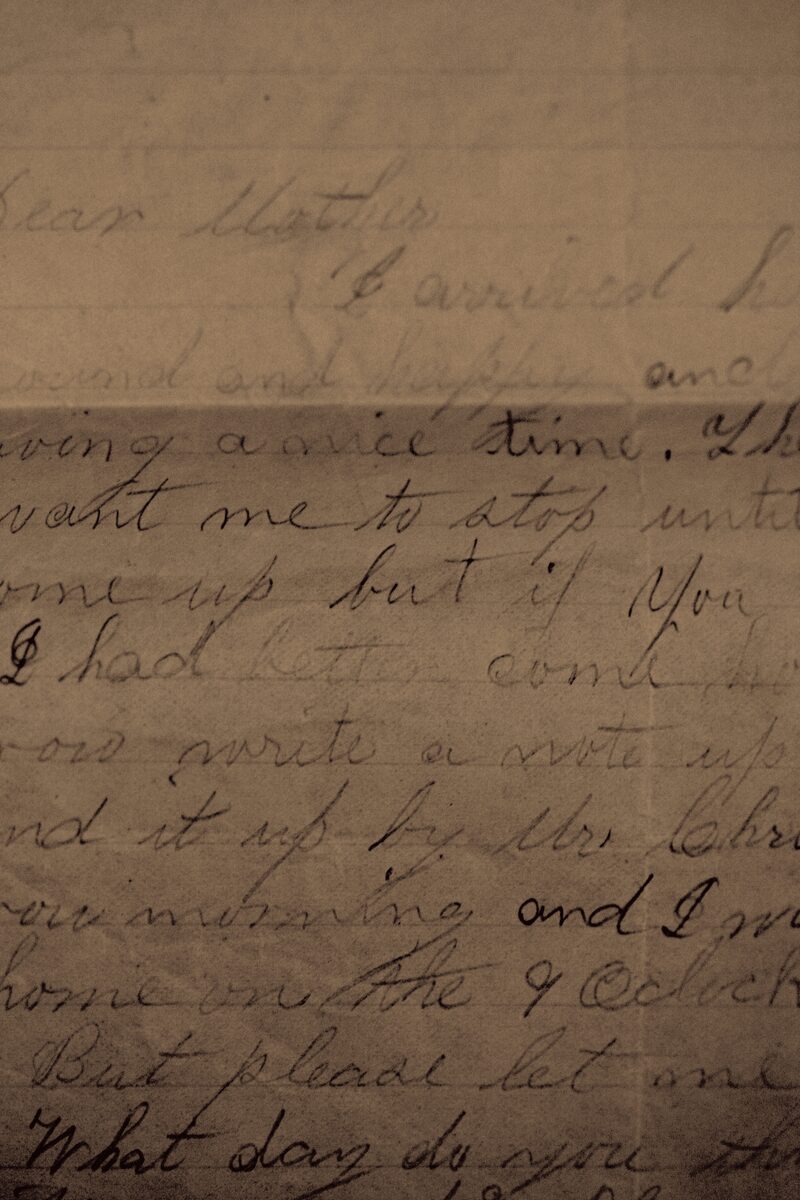 Dear Mother
I arrived h
ound and happy and
ving a nice time. The
want me to stop until
ome up but if You
I had better come ho
row write a note up
nd it up by Mr. Chri
row morning and I w
home on the 9 Oclock
But please let me
What day do you th